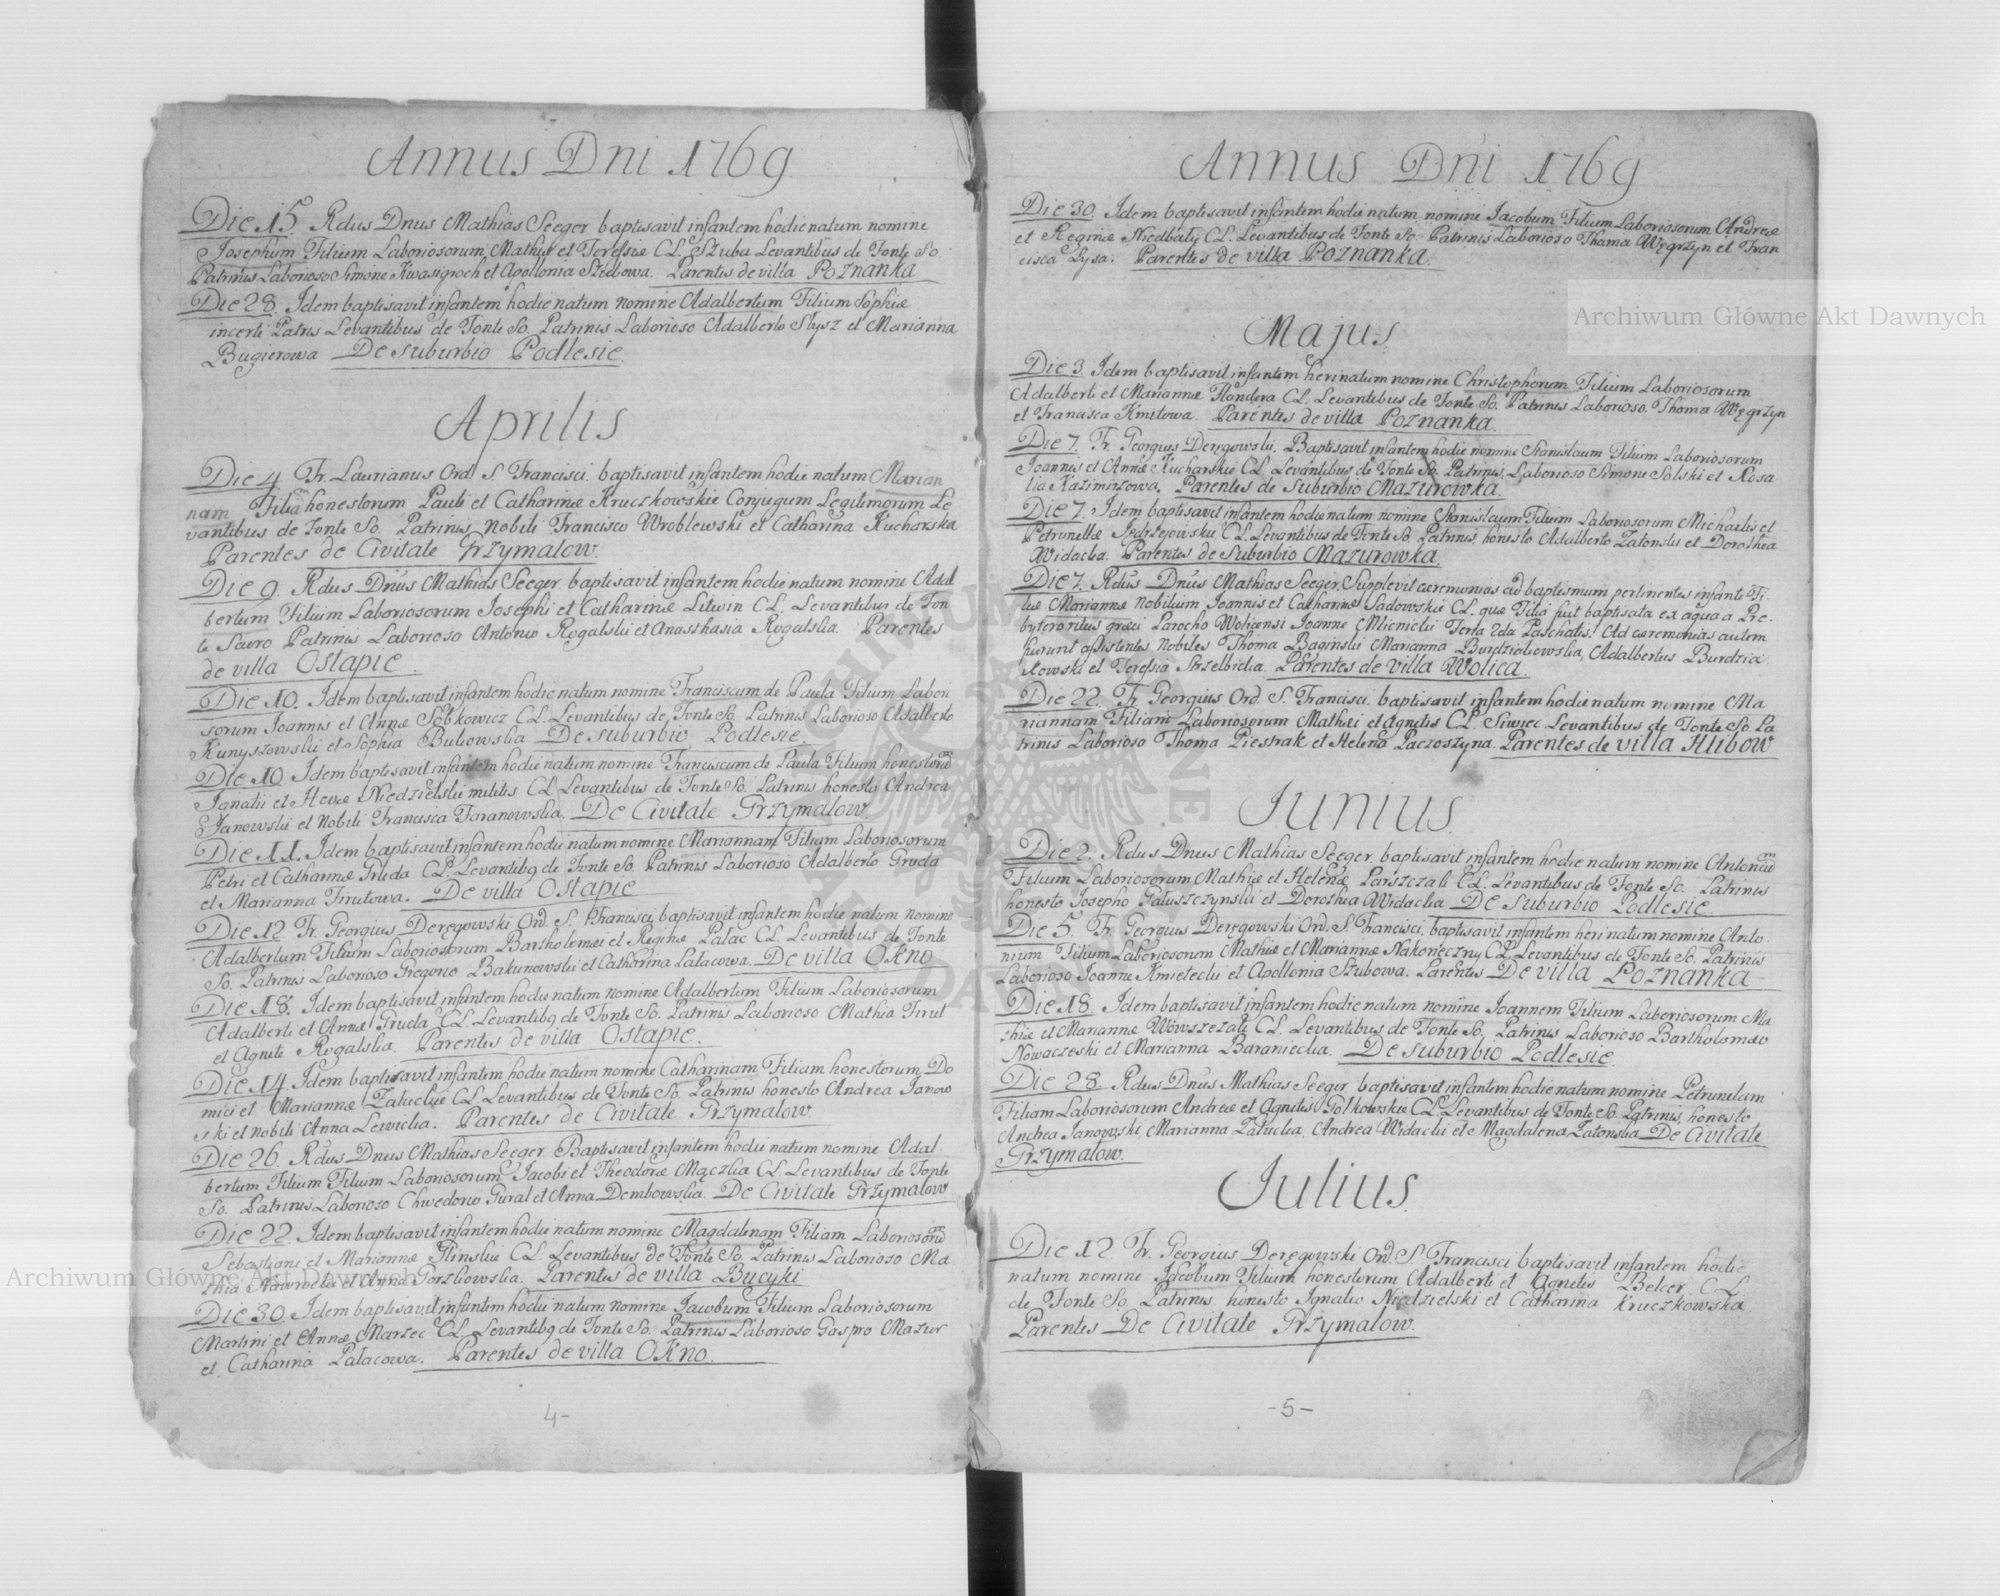 Annus Dni 1769
Die 15. Rdus Dnus Mathias Seeger baptisavit infantem hodie natum nomine
Josephum Filium Laboriosorum Mathiæ et Teressiæ CL. Sztuba Levantibus de Fonte So
Patrinis Laborioso Simone Kwasigroch et Apollonia Szubowa. Parentes de villa Poznanka
Die 28. Idem baptisavit infantem hodie natum nomine Adalbertum Filium Sophiæ
incerti Patris Levantibus de Fonte So. Patrinis Laborioso Adalberto Slysz et Marianna
Bugierowa De suburbio Podlesie.
Aprilis
Die 4 Fr. Laurianus Ord. S. Francisci baptisavit infantem hodie natum Marian
nam Filiam honestorum Pauli et Catharinæ Kruczkowskie Conjugum Legitimorum Le
vantibus de Fonte So. Patrinis Nobili Francisco Wroblewski et Catharina Kucharska
Parentes de Civitate Grzymalow.
Die 9. Rdus Dnus Mathias Seeger baptisavit infantem hodie natum nomine Adal
bertum Filium Laboriosorum Josephi et Catharinæ Litwin CL. Levantibus de Fon
te Sacro Patrinis Laborioso Antonio Rogalski et Anasthasia Rogalska Parentes
de villa Ostapie.
Die 10. Idem baptisavit infantem hodie natum nomine Franciscum de Paula Filium Labori
sorum Joannis et Annæ Sobkowicz CL. Levantibus de Fonte So. Patrinis Laborioso Adalberto
Kunyszowski et Sophia Bukowska De suburbio Podlesie.
Die 10 Idem baptisavit infantem hodie natum nomine Franciscum de Paula Filium honestorum
Ignatii et Hevæ Niedzielski militis CL Levantibus de Fonte So. Patrinis honesto Andrea
Janowski et Nobili Francisca Taranowska. De Civitate Grzymalow
Die 11. Idem baptisavit infantem hodie natum nomine Mariannam Filiam Laboriosorum
Petri et Catharinæ Gruda CL. Levantibq de Fonte So. Patrinis Laborioso Adalberto Gruda
et Marianna Firutowa. De villa Ostapie
Die 12 Fr. Georgius Deręgowski Ord. S. Francisci baptisavit infantem hodie natum nomine
Adalbertum Filium Laboriosorum Bartholomei et Reginæ Palac CL. Levantibus de Fonte
So. Patrinis Laborioso Gregorio Bakunowski et Catharina Palacowa. De villa Okno
Die 18. Idem baptisavit infantem hodie natum nomine Adalbertum Filium Laboriosorum
Adalberti et Annæ Gruda CL. Levantibq de Fonte So. Patrinis Laborioso Mathia Firut
et Agnete Rogalska. Parentes de villa Ostapie.
Die 14. Idem baptisavit infantem hodie natum nomine Catharinam Filiam honestorum Do
mici et Mariannæ Zaluckie CL. Levantibus de Fonte So. Patrinis honesto Andrea Janow
ski et Nobili Anna Lewicka. Parentes de Civitate Grzymalow
Die 26. Rdus Dnus Mathias Seeger Baptisavit infantem hodie natum nomine Adal
bertum Filium Filium Laboriosorum Jacobi et Theodoræ Mączka CL Levantibus de Fonte
So. Patrinis Laborioso Chwedorio Gural et Anna Dembowska. De Civitate Grzymalow
Die 22. Idem baptisavit infantem hodie natum nomine Magdalenam Filiam Laboriosorum
Sebastiani et Mariannæ Glinskie CL. Levantibus de Fonte So. Patrinis Laborioso Ma
thia Nawrocki et Anna Gorzkowska. Parentes de villa Bucyki
Die 30. Idem baptisavit infantem hodie natum nomine Jacobum Filium Laboriosorum
Martini et Annæ Marzec CL. Levantibq de Fonte So. Patrinis Laborioso Gaspro Mazur
et Catharina Palacowa. Parentes de villa Okno.
4-
Annus Dni 1769
Die 30. Idem baptisavit infantem hodie natum nomine Jacobum Filium Laboriosorum Andreæ
et Reginæ Niedbały CL. Levantibus de Fonte So. Patrinis Laborioso Thoma Węgrzyn et Fran
cisca Lysa. Parentes de villa Poznanka.
Majus
Die 3. Idem baptisavit infantem heri natum nomine Christophorum Filium Laboriosorum
Adalberti et Mariannæ Flondera CL. Levantibus de Fonte So. Patrinis Laborioso Thoma Węgrzyn
et Francisca Kmitowa. Parentes de villa Poznanka.
Die 7. Fr. Georgius Deręgowski Baptisavit infantem hodie nomine Stanislaum Filium Laboriosorum
Joannis et Annæ Kucharskie CL. Levantibus de Fonte So. Patrinis, Laborioso Simone Solski et Rosa
lia Kazimirzowa. Parentes de Suburbio Mazurowka.
Die 7. Idem baptisavit infantem hodie natum nomine Stanislaum Filium Laboriosorum Michaelis et
Petrunellæ Jędrzejowskie CL. Levantibus de Fonte So. Patrinis, honesto Adalberto Zatonski et Dorothea
Widacka. Parentes de Suburbio Mazurowka.
Die 7. Rdus Dnus Mathias Seeger, Supplevit ceremonias ad baptismum pertinentes infanti Fi
liæ Mariannæ Nobilium Joannis et Catharinæ Sadowskie CL. quæ Filia fuit baptisata ex aqua a Prę
bytero ritus græci Parocho Wolicensi Joanne Micnicki Feria 2da Paschatis. Ad ceremonias autem
fuerunt assistentes Nobiles Thoma Baginski Marianna Burdziakowska, Adalbertus Burdzia
kowski et Teressia Strzelbicka. Parentes de villa Wolica.
Die 22. Fr. Georgius Ord. S. Francisci baptisavit infantem hodie natum nomine Ma
riannam Filiam Laboriosorum Mathei et Agnetis CL. Siwiec Levantibus de Fonte So. Pa
trinis Laborioso Thoma Piestrak et Helena Paczoszyna. Parentes de villa Hlibow
Junius.
Die 2. Rdus Dnus Mathias Seeger baptisavit infantem hodie natum nomine Antonium
Filium Laboriosorum Mathiæ et Helenæ Parszczale CL. Levantibus de Fonte So. Patrinis
honesto Josepho Galuszczynski et Dorothea Widacka De suburbio Podlesie.
Die 5. Fr. Georgius Deręgowski Ord. S. Francisci, baptisavit infantem heri natum nomine Anto
nium Filium Laboriosorum Mathiæ et Mariannæ Nakoneczny CL. Levantibus de Fonte So. Patrinis
Laborioso Joanne Kmietecki et Apollonia Szubowa. Parentes De villa Poznanka
Die 18. Idem baptisavit infantem hodie natum nomine Joannem Filium Laboriosorum Ma
thiæ et Mariannæ Wowszczale CL. Levantibus de Fonte So. Patrinis Laborioso Bartholomeo
Nowaczeski et Marianna Baraniecka. De suburbio Podlesie
Die 28. Rdus Dnus Mathias Seeger, baptisavit infantem hodie natum nomine Petrunelam
Filiam Laboriosorum Andreæ et Agnetis Golkowskie CL. Levantibus de Fonte So. Patrinis, honesto
Andrea Janowski, Marianna Zalucka, Andrea Widacki et Magdalena Zatonska De Civitate
Grzymalow.
Julius.
Die 12 Fr. Georgius Deręgowski Ord. S. Francisci baptisavit infantem hodie
natum nomine Jacobum Filium honestorum Adalberti et Agnetis Belcer CL.
de Fonte So. Patrinis, honesto Ignatio Niedzielski et Catharina Kruczkowska.
Parentes De Civitate Grzymalow.
-5-
Archiwum Główne Akt Dawnych
Archiwum Główne Akt Dawnych
ARCHIWUM GŁÓWNE AKT DAWNYCH